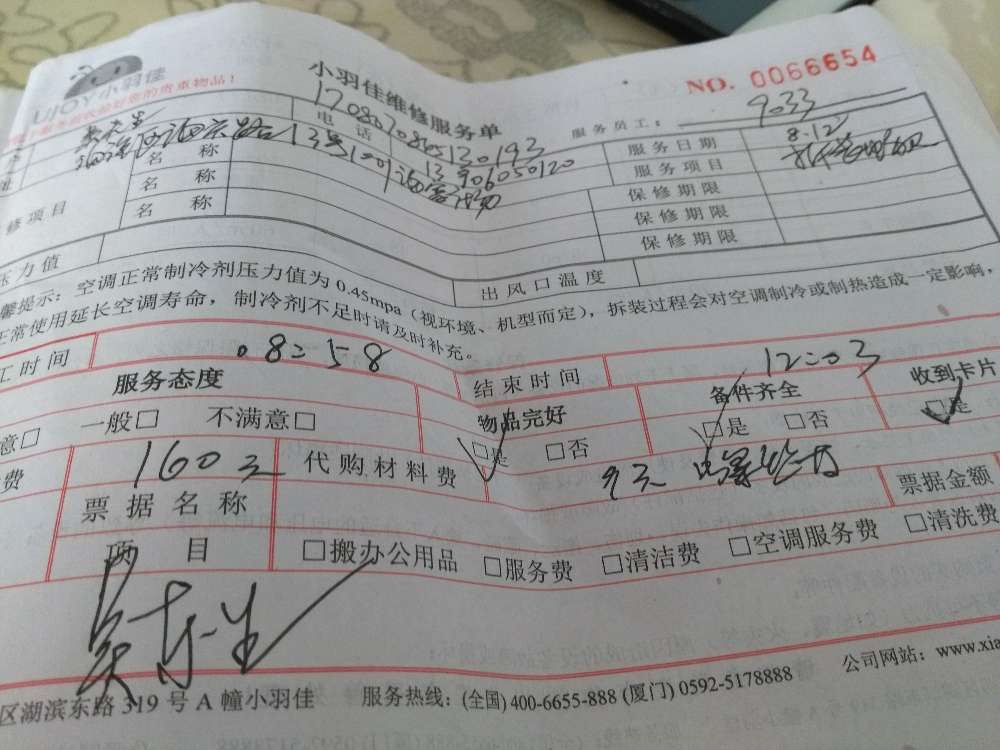 UJOY小羽佳
小羽佳维修服务单
NO. 0066654
贵重物品!
170807085130193
服务员工: 9033
电话 13906050120
服务日期 8.12
名称
服务项目
名称
保修期限
修项目 名称
保修期限
保修期限
压力值 出风口温度
馨提示: 空调正常制冷剂压力值为0.45mpa (视环境、机型而定), 拆装过程会对空调制冷或制热造成一定影响,
正常使用延长空调寿命, 制冷剂不足时请及时补充。
工时间 08:58 结束时间 12:03
服务态度 物品完好 备件齐全 收到卡片
意□ 一般□ 不满意□ □是 □否 □是 □否 □是
费 160元 代购材料费 9元
票据名称 票据金额
项目 □搬办公用品 □服务费 □清洁费 □空调服务费 □清洗费
区湖滨东路319号A幢小羽佳 服务热线: (全国) 400-6655-888 (厦门) 0592-5178888 公司网站: www.xia